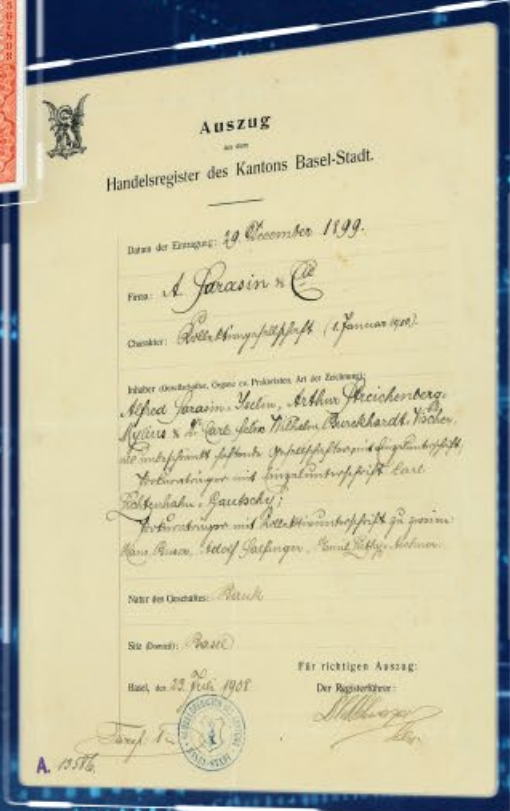 Auszug
aus dem
Handelsregister des Kantons Basel-Stadt.
Datum der Eintragung: 29. December 1899.
Firma: A. Sarasin & Cie
Charakter: Kollektivgesellschaft (1. Januar 1900).
Inhaber (Gesellschafter, Organe etc. Prokuristen, Art der Zeichnung):
Alfred Sarasin-Iselin, Arthur Streichenberg-
Mylius & Dr. Carl Felix Wilhelm Burckhardt-Vischer,
als unbeschränkt haftende Gesellschafter mit Einzelunterschrift,
Prokuraträger mit Einzelunterschrift Carl
Lichtenhahn-Gautschy;
Prokuraträger mit Kollektivunterschrift zu zweien
Hans Adolf Emil
Natur des Geschäftes: Bank
Sitz (Domizil): Basel
Für richtigen Auszug:
Basel, den 23. Juli 1908
Der Registerführer:
BASEL-STADT
A. 13586.